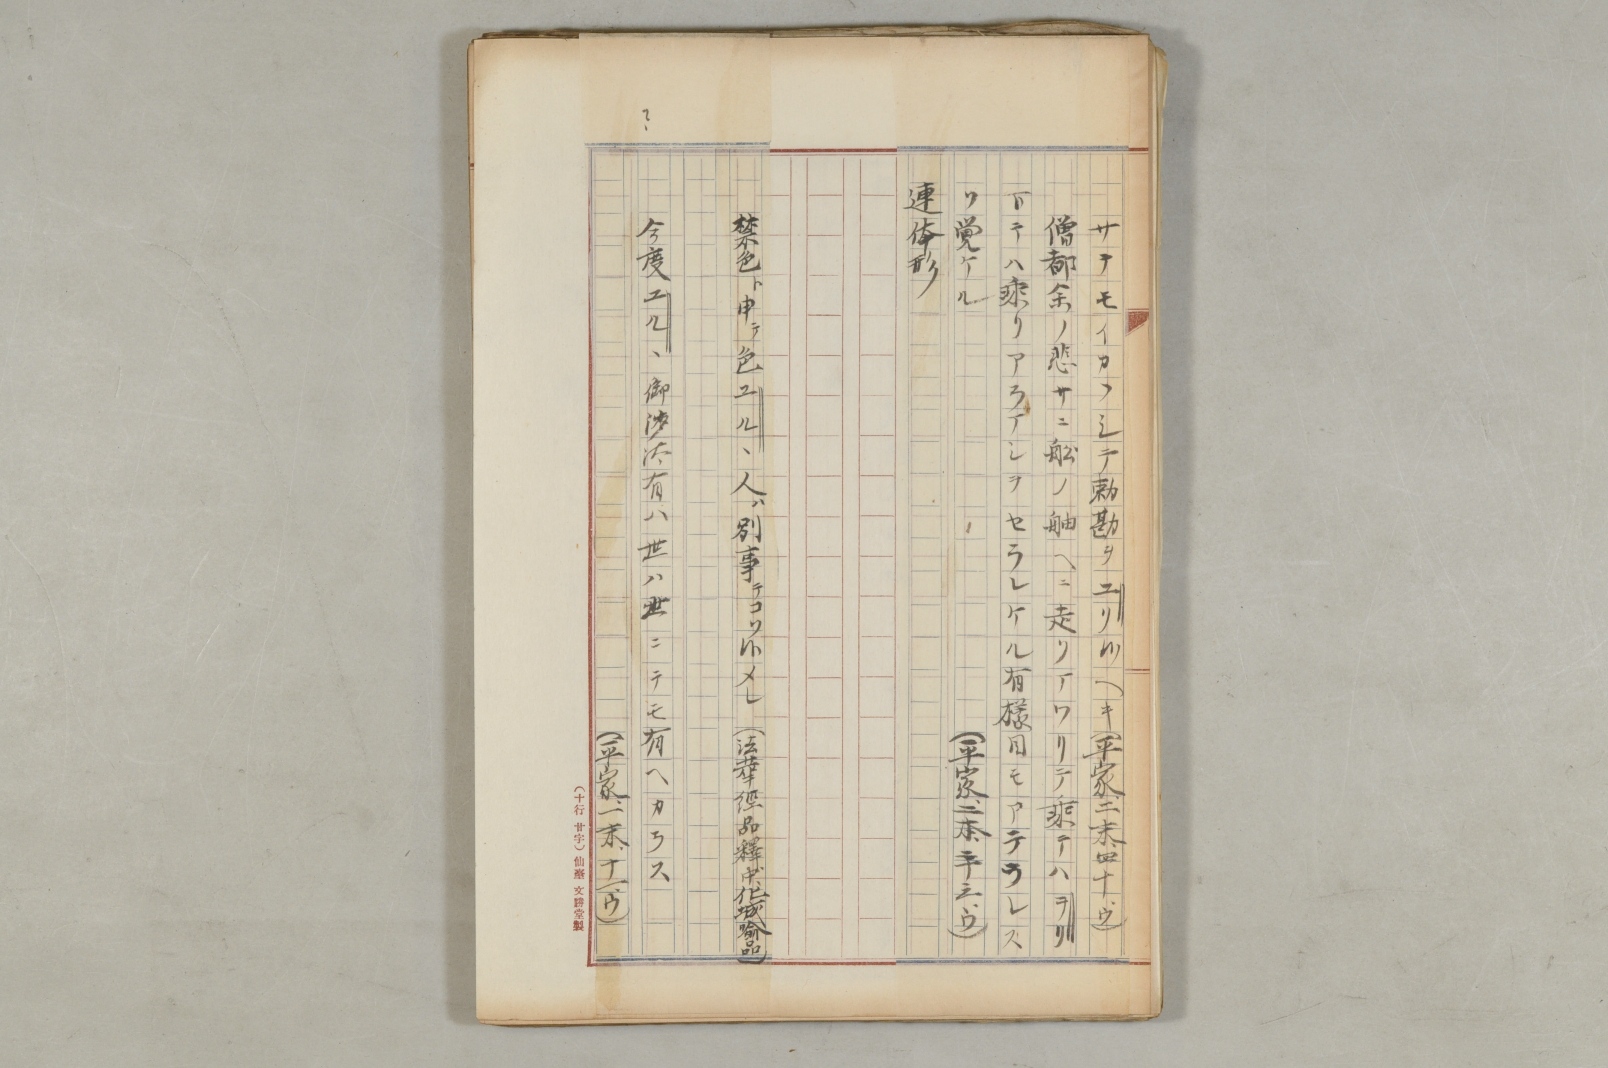 サテモイカヽシテ勅勘ヲユリ候ヘキ(平家、二末、四十、ウ)
僧都余ノ悲サニ船ノ舳ヘニ走リアワリテ乗テハヲリ
下テハ乗リアラマシヲセラレケル有様目モアテラレス
ソ覚ケル(平家、二本、
連体形
禁色ト申テ色ユルヽ人ハ別事テコソ候メレ(法華經品釋中、化城喩品)
今度ユルヽ御沙汰有ハ世ハ世ニテモ有ヘカラス
(平家、一末、十一、ウ)
(十行 廿字) 仙臺 文勝堂製